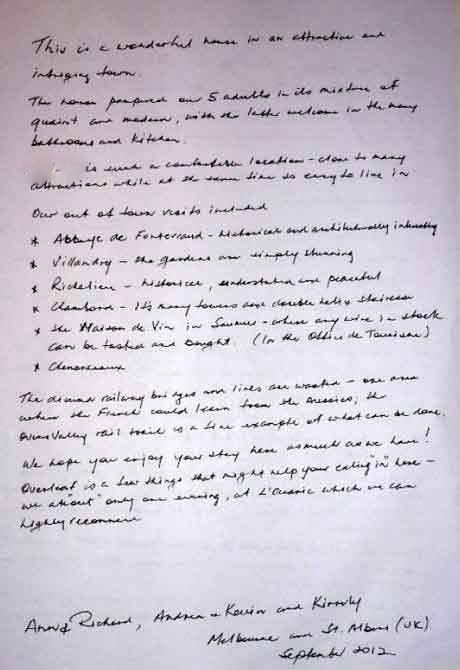 This is a wonderful house in an attractive and
intriging town.
The house pampered our 5 adults in its mixture of
quaint and modern, with the latter welcome in the many
bathrooms and kitchen.
is such a comfortable location - close to many
attractions while at the same time so easy to live in
Our out of town visits included
* Abbaye de Fontevraud - historical and architecturally interesting
* Villandry - the gardens are simply stunning
* Richelieu - historical, understated and peaceful
* Chambord - it's many towers and double helix staircase
* the Maison de Vin in Saumur - where any wine in stock
can be tasted and bought. (In the Office de Tourisme)
* Chenonceaux
The disused railway bridges and lines are wasted - one area
where the French could learn from the Aussies; the
Ovens Valley rail trail is a fine example of what can be done.
We hope you enjoy your stay here as much as we have!
Overleaf is a few things that might help your eating "in" here -
we ate "out" only one evening, at L'Oceanic which we can
highly recommend
Richard, Andrea & Kevin and Kimberly
Melbourne and St. Albans (UK)
September 2012